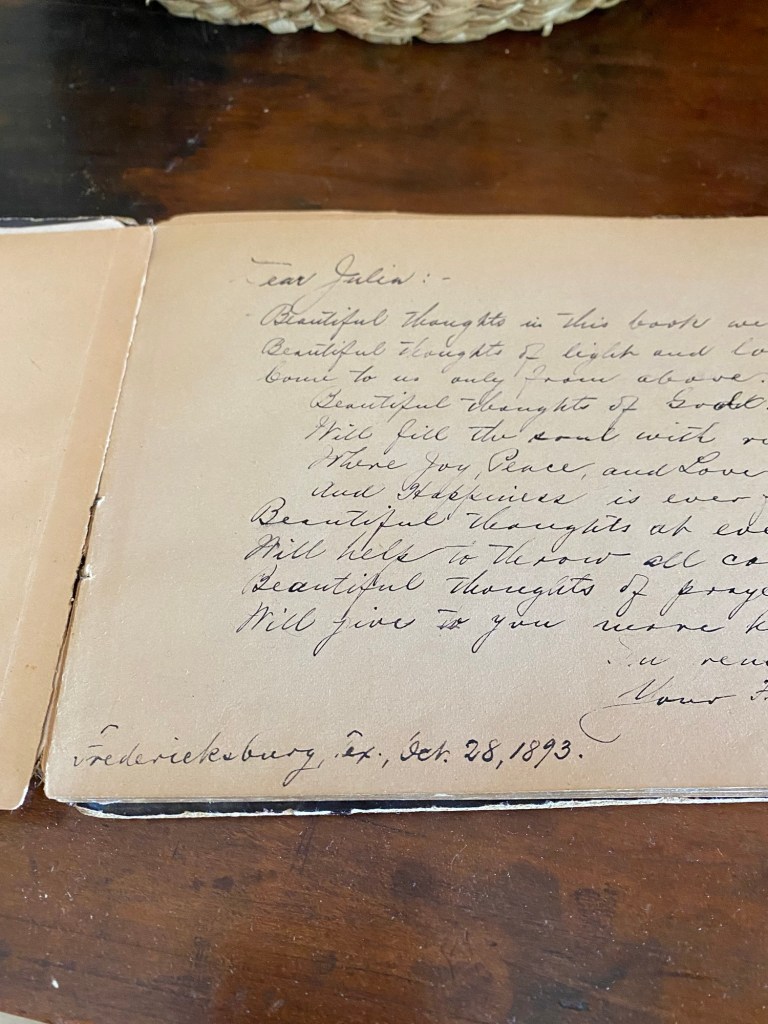 Dear Julia:-
Beautiful thoughts in this book we
Beautiful thoughts of light and lo
Come to us only from above.
Beautiful thoughts of God
Will fill the soul with
Where Joy, Peace, and Love
And Happiness is ever
Beautiful thoughts at eve
Will help to throw all ca
Beautiful thoughts of praye
Will give to you more
In rem
Your F
Fredericksburg, Tex., Oct. 28, 1893.